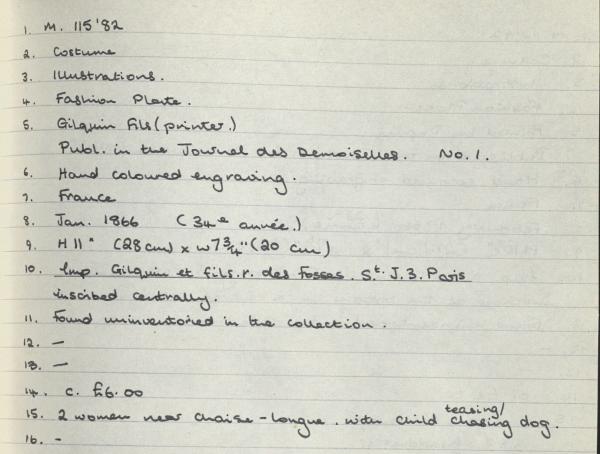 1. M. 115'82
2. Costume
3. Illustrations.
4. Fashion Plate.
5. Gilquin Fils (printer.)
Publ. in the Journal des Demoiselles. No. 1.
6. Hand coloured engraving.
7. France
8. Jan. 1866 (34e année.)
9. H 11" (28cm) x W 7 3/4" (20 cm)
10. Imp. Gilquin et fils. r. des Fosses. St. J. 3. Paris
inscribed centrally.
11. Found uninventoried in the collection.
12. —
13. —
14. c. £6.00
15. 2 women near chaise-longue. with child teasing/ chasing dog.
16. -